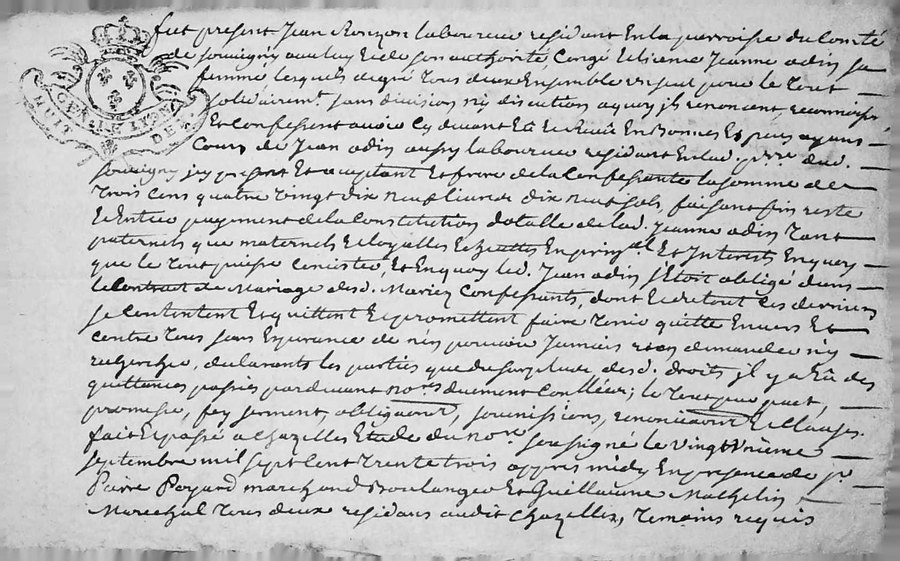 GEN. DE LYON
HUIT DEN.
fut present Jean Ronzon laboureur residant En la parroisse du Comté
de souvigny auquel Et de son authorité Congé Et licence Jeanne adin sa
femme lesquels de gré Tous deux Ensemble un seul pour le Tout
solidairemt. sans division ny discution a quoy jls renoncent, reconnoissent
Et Confessent avoir Cy devant Eü Et Receu En Bonnes Especes ayans
Cours de Jean adin aussy laboureur residant En lad. prre. dud.
souvigny jcy present Et acceptant Et frere de la Confessante la somme de
Trois Cens quatre Vingt dix neuf livres dix neuf sols, faisant fin reste
Et Entier payement de la Constitution dotalle de lad. Jeanne adin Tant
paternels que maternels Et loyalles Et Quittes En prinpal Et Interets En quoy
que le Tout puisse Consister, Et En quoy led. Jean adin s'Etoit obligé dans
le Contrat de Mariage desd. Mariez Confessants, dont Et de tout Ces derniers
se Contentent Et quittent Et promettent faire Tenir quitte Envers Et
Contre Tous sans Esperance de n'en pouvoir Jamais rien demander ny
rechercher, declarants les parties que du surplus desd. droits jl y a Eü des
quittances passées pardevant nores duement Conllées; le Tout par pact,
promesse, foy serment, obligaons, soumissions, renonciaons Et Clauses.
fait Et passé a Chazelles Etude du nore. sousigné le vingt Vnieme
septembre mil sept Cent Trente trois appres midy En presence de sr.
Pierre Payard marchand Boulanger Et Guillaume Mathelin
Marechal Tous deux residans audit Chazelles, Temoins requis